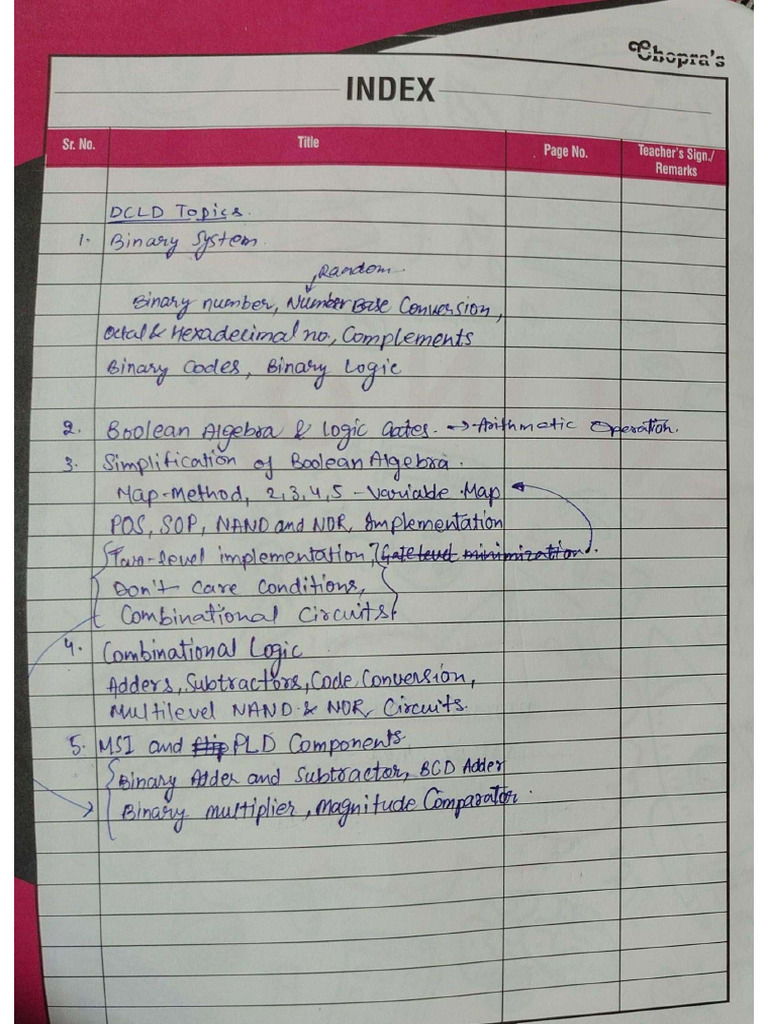 Chopra's
INDEX
Sr. No. Title Page No. Teacher's Sign./ Remarks
DCLD Topics.
1. Binary System.
Random.
Binary number, Number Base Conversion,
Octal & Hexadecimal no., Complements
Binary Codes, Binary Logic
2. Boolean Algebra & Logic Gates. → Arithmetic Operation.
3. Simplification of Boolean Algebra.
Map-Method, 2,3,4,5 - Variable Map
POS, SOP, NAND and NOR, Implementation
Two-level implementation, Gate level minimization.
Don't Care Conditions,
Combinational Circuits
4. Combinational Logic
Adders, Subtractors, Code Conversion,
Multilevel NAND & NOR Circuits.
5. MSI and PLD Components
Binary Adder and Subtractor, BCD Adder
Binary multiplier, Magnitude Comparator.